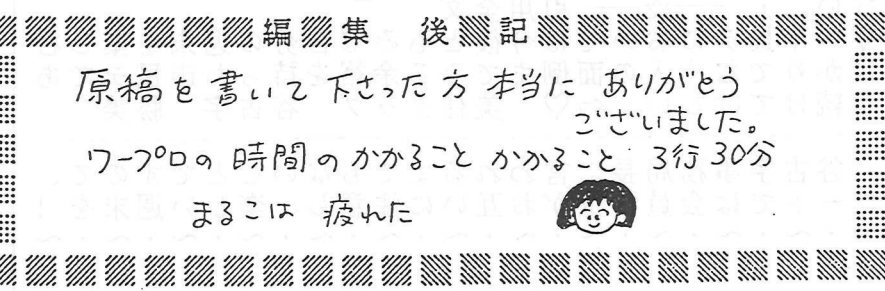 編集後記
原稿を書いて下さった方 本当に ありがとう
ございました。
ワープロの時間のかかること かかること 3行30分
まるこは 疲れた